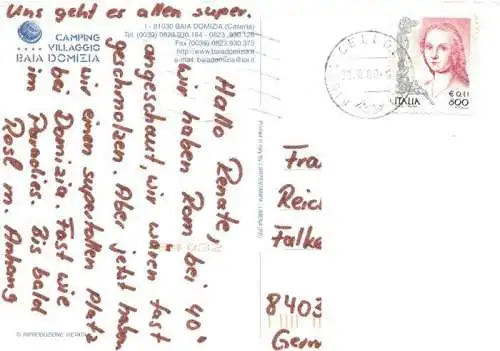 Uns geht es allen super.
CAMPING
VILLAGGIO
BAIA DOMIZIA
I - 81030 BAIA DOMIZIA (Caserta)
Tel. (0039) 0823.930.164 - 0823.930.126
Fax (0039) 0823.930.375
http://www.baiadomizia.it
e-mail: baiadomizia@iol.it
Hallo Renate,
wir haben Rom bei 40°
angeschaut, wir waren fast
geschmolzen. Aber jetzt haben
wir einen supertollen Platz
bei Domizia. Fast wie
im Paradies. Bis bald
Rosl m. Anhang
© RIPRODUZIONE VIETATA
CELLO
ITALIA
€ 0,41
800
Fra
Reic
Falke
8403
Germ